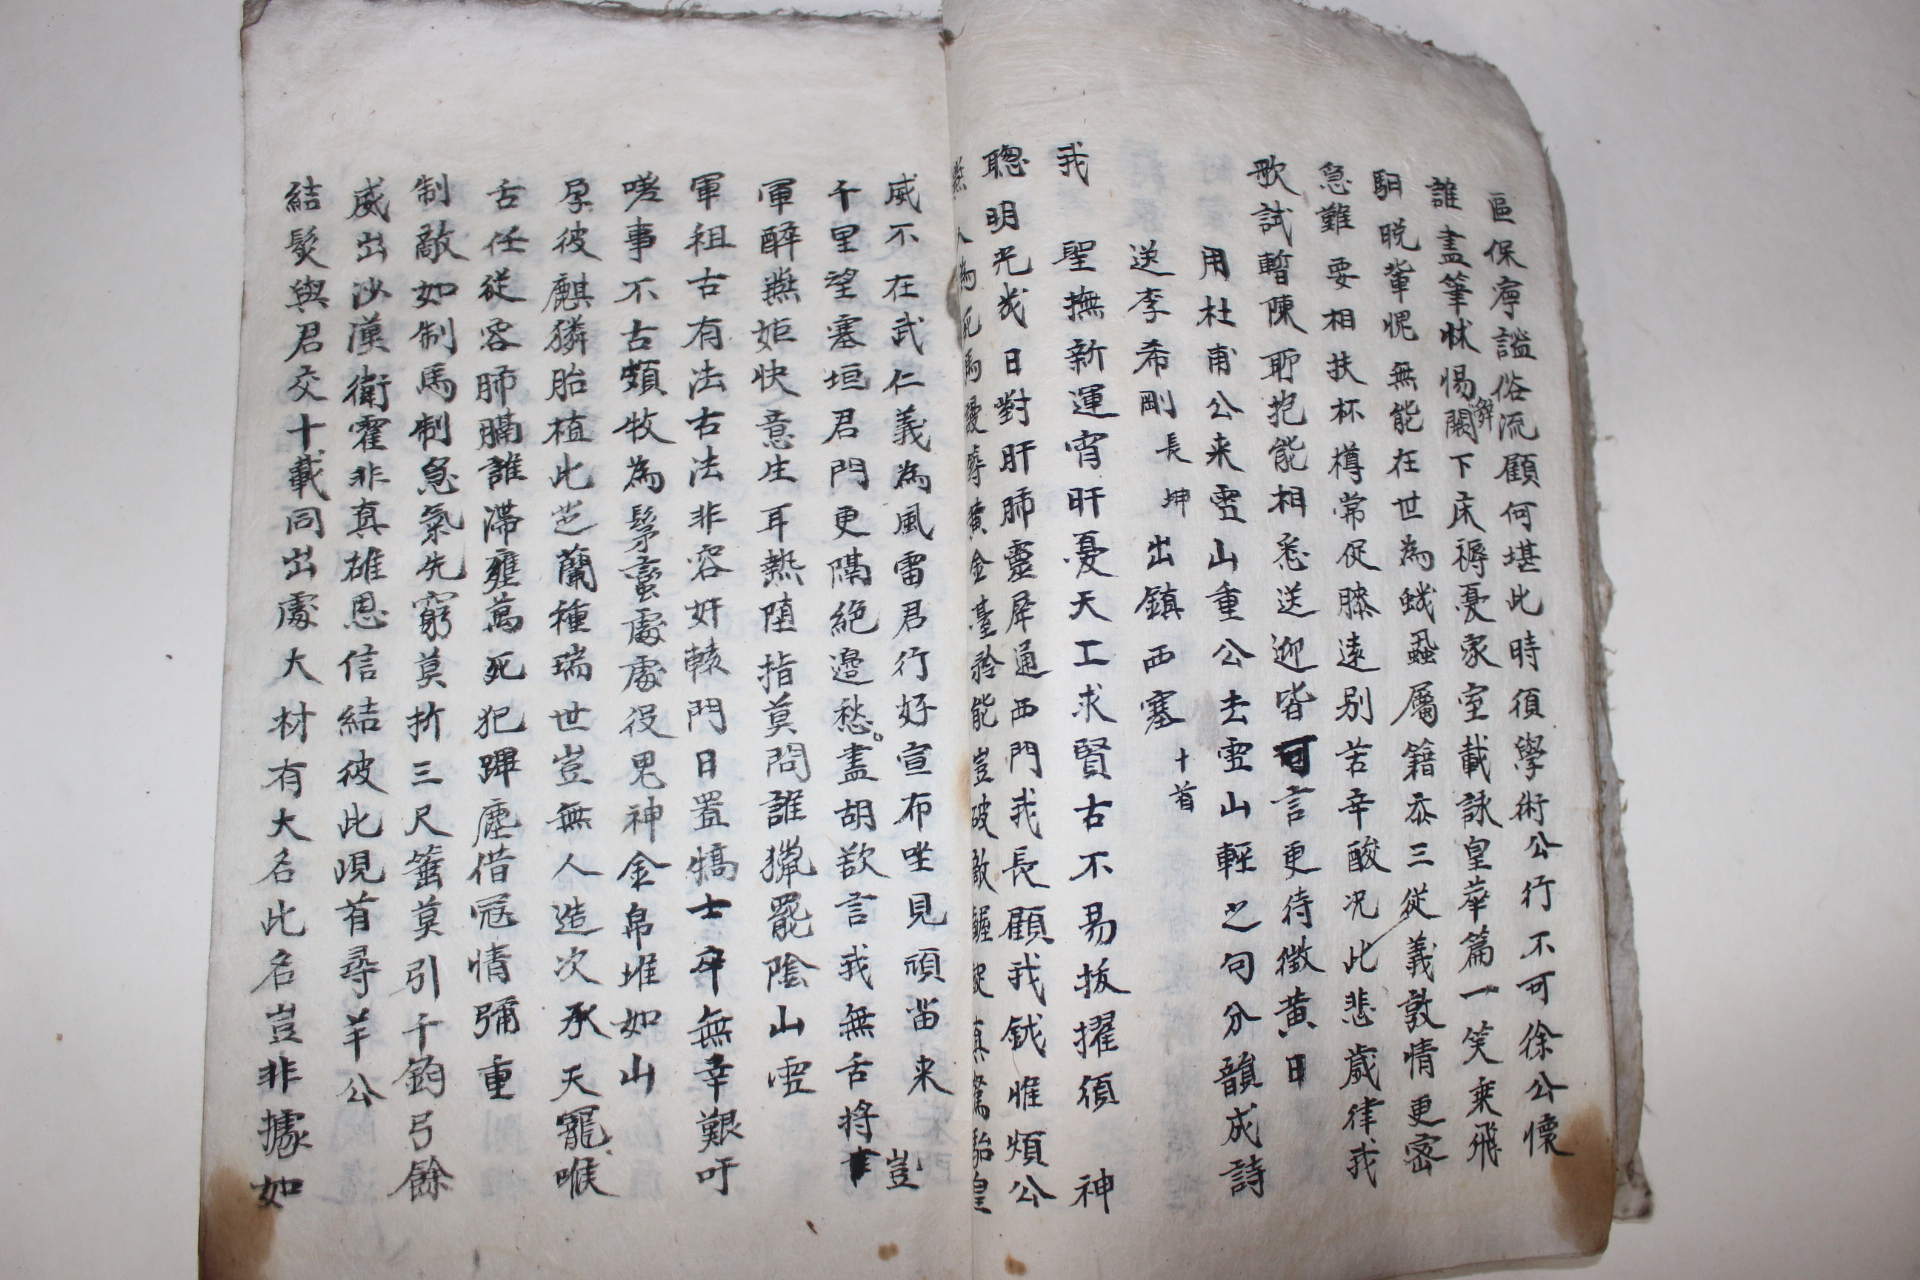 區保寧謐俗流顧何堪此時須學術公行不可徐公懷
誰盡筆狀惕解闕下床褥憂家室載詠皇華篇一笑乘飛
駬晩輩愢無能在世為蛾蝨屬籍忝三從義敦情更密
急難要相扶杯樽常促膝遠别苦辛酸况此悲歲律我
歌試暫陳耶抱能相悉送迎皆可言更待徴黄日
用杜甫公来雪山重公去雪山輕之句分韻成詩
送李希剛長坤出鎮西塞十首
聖撫新運宵旰憂天工求賢古不易拔擢須 神
我
聰明光戎日對肝肺靈犀通西門我長顧我鉞惟煩公
燕人為死馬謾築黄金臺於能豈破敵握 真駑駘皇
威不在武仁義為風雷君行好宣布坐見頑嵒来
千里望塞垣君門更隔絶邉愁盡胡欲言我無舌將 豈
軍醉燕姬快意生耳熱墮指莫問誰獵罷陰山雪
軍租古有法古法非容奸轅門日置犒士卒無幸艱吁
嗟事不古頗牧為髳蠻處處役鬼神金帛堆如山
孕彼麒獜胎植此芝蘭種瑞世豈無人造次承天寵喉
舌任従容肺膈誰滯壅萬死犯蹕塵借冦情彌重
制敵如制馬制急氣先窮莫折三尺箠莫引千鈞弓餘
威出沙漠衛霍非真雄恩信結彼此峴首尋羊公
結髮與君交十載同出處大材有大名此名豈非據如